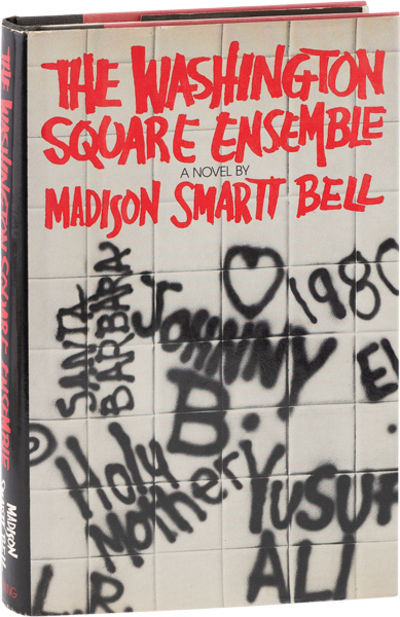 THE WASHINGTON
SQUARE ENSEMBLE
A NOVEL BY
MADISON SMARTT BELL
SANTA
BARBARA
1980
JOHNNY
B.
El
Holy
Mother
YUSUF
ALI
L.R.
THE WASHINGTON SQUARE ENSEMBLE
MADISON
SMARTT BELL